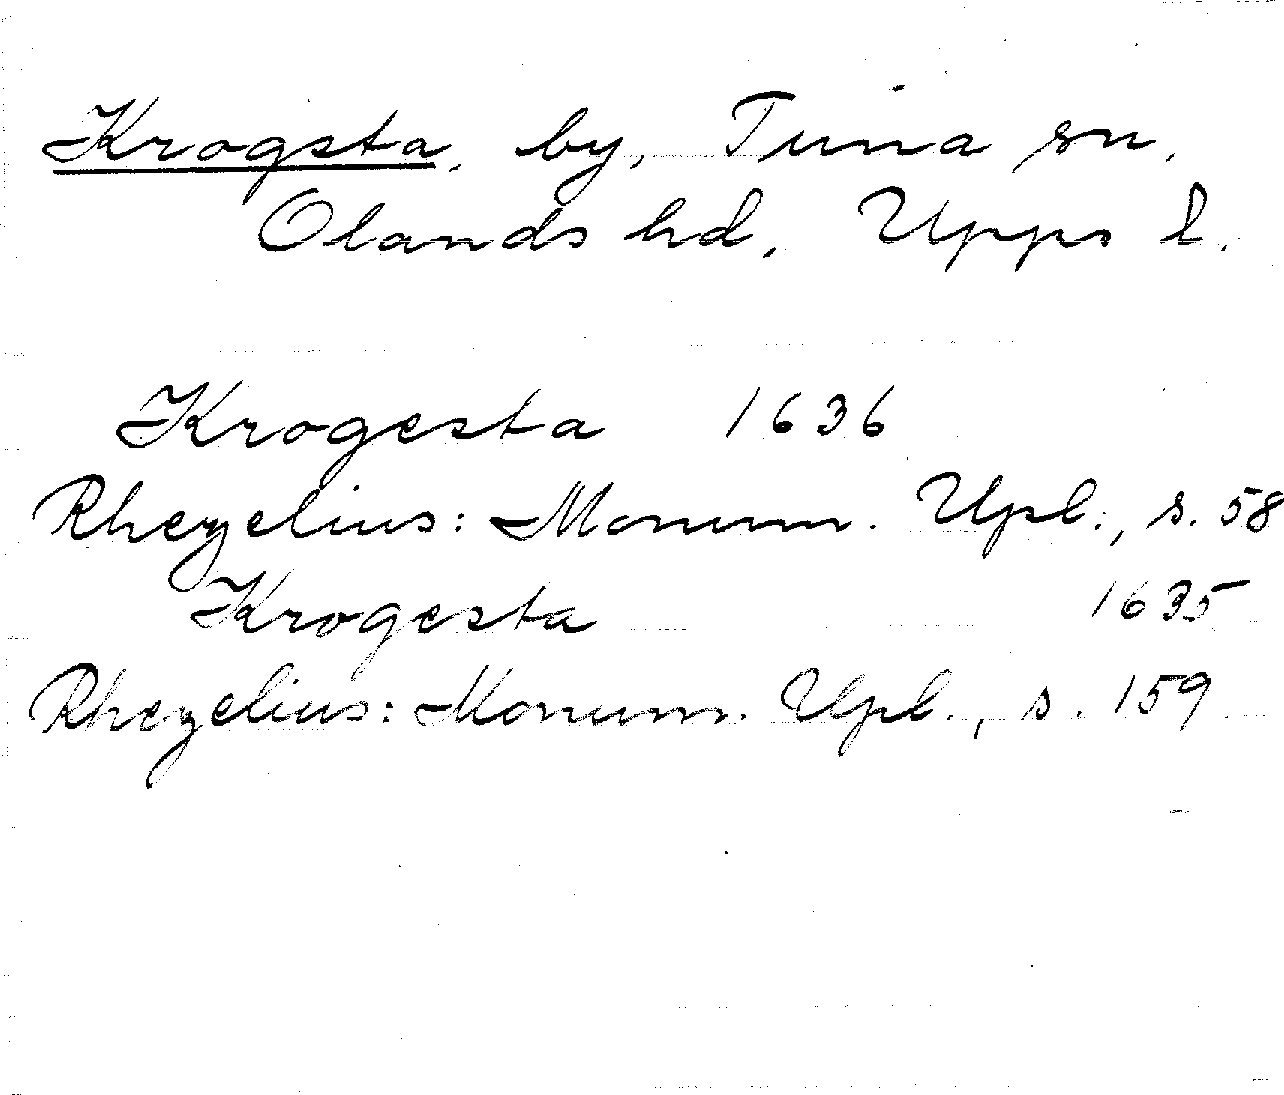 Krogsta, by, Tuna sn,
Olands hd, Upps l.
Krogesta 1636
Rhezelius: Monum. Upl., s. 58
Krogesta 1635
Rhezelius: Monum. Upl., s. 159